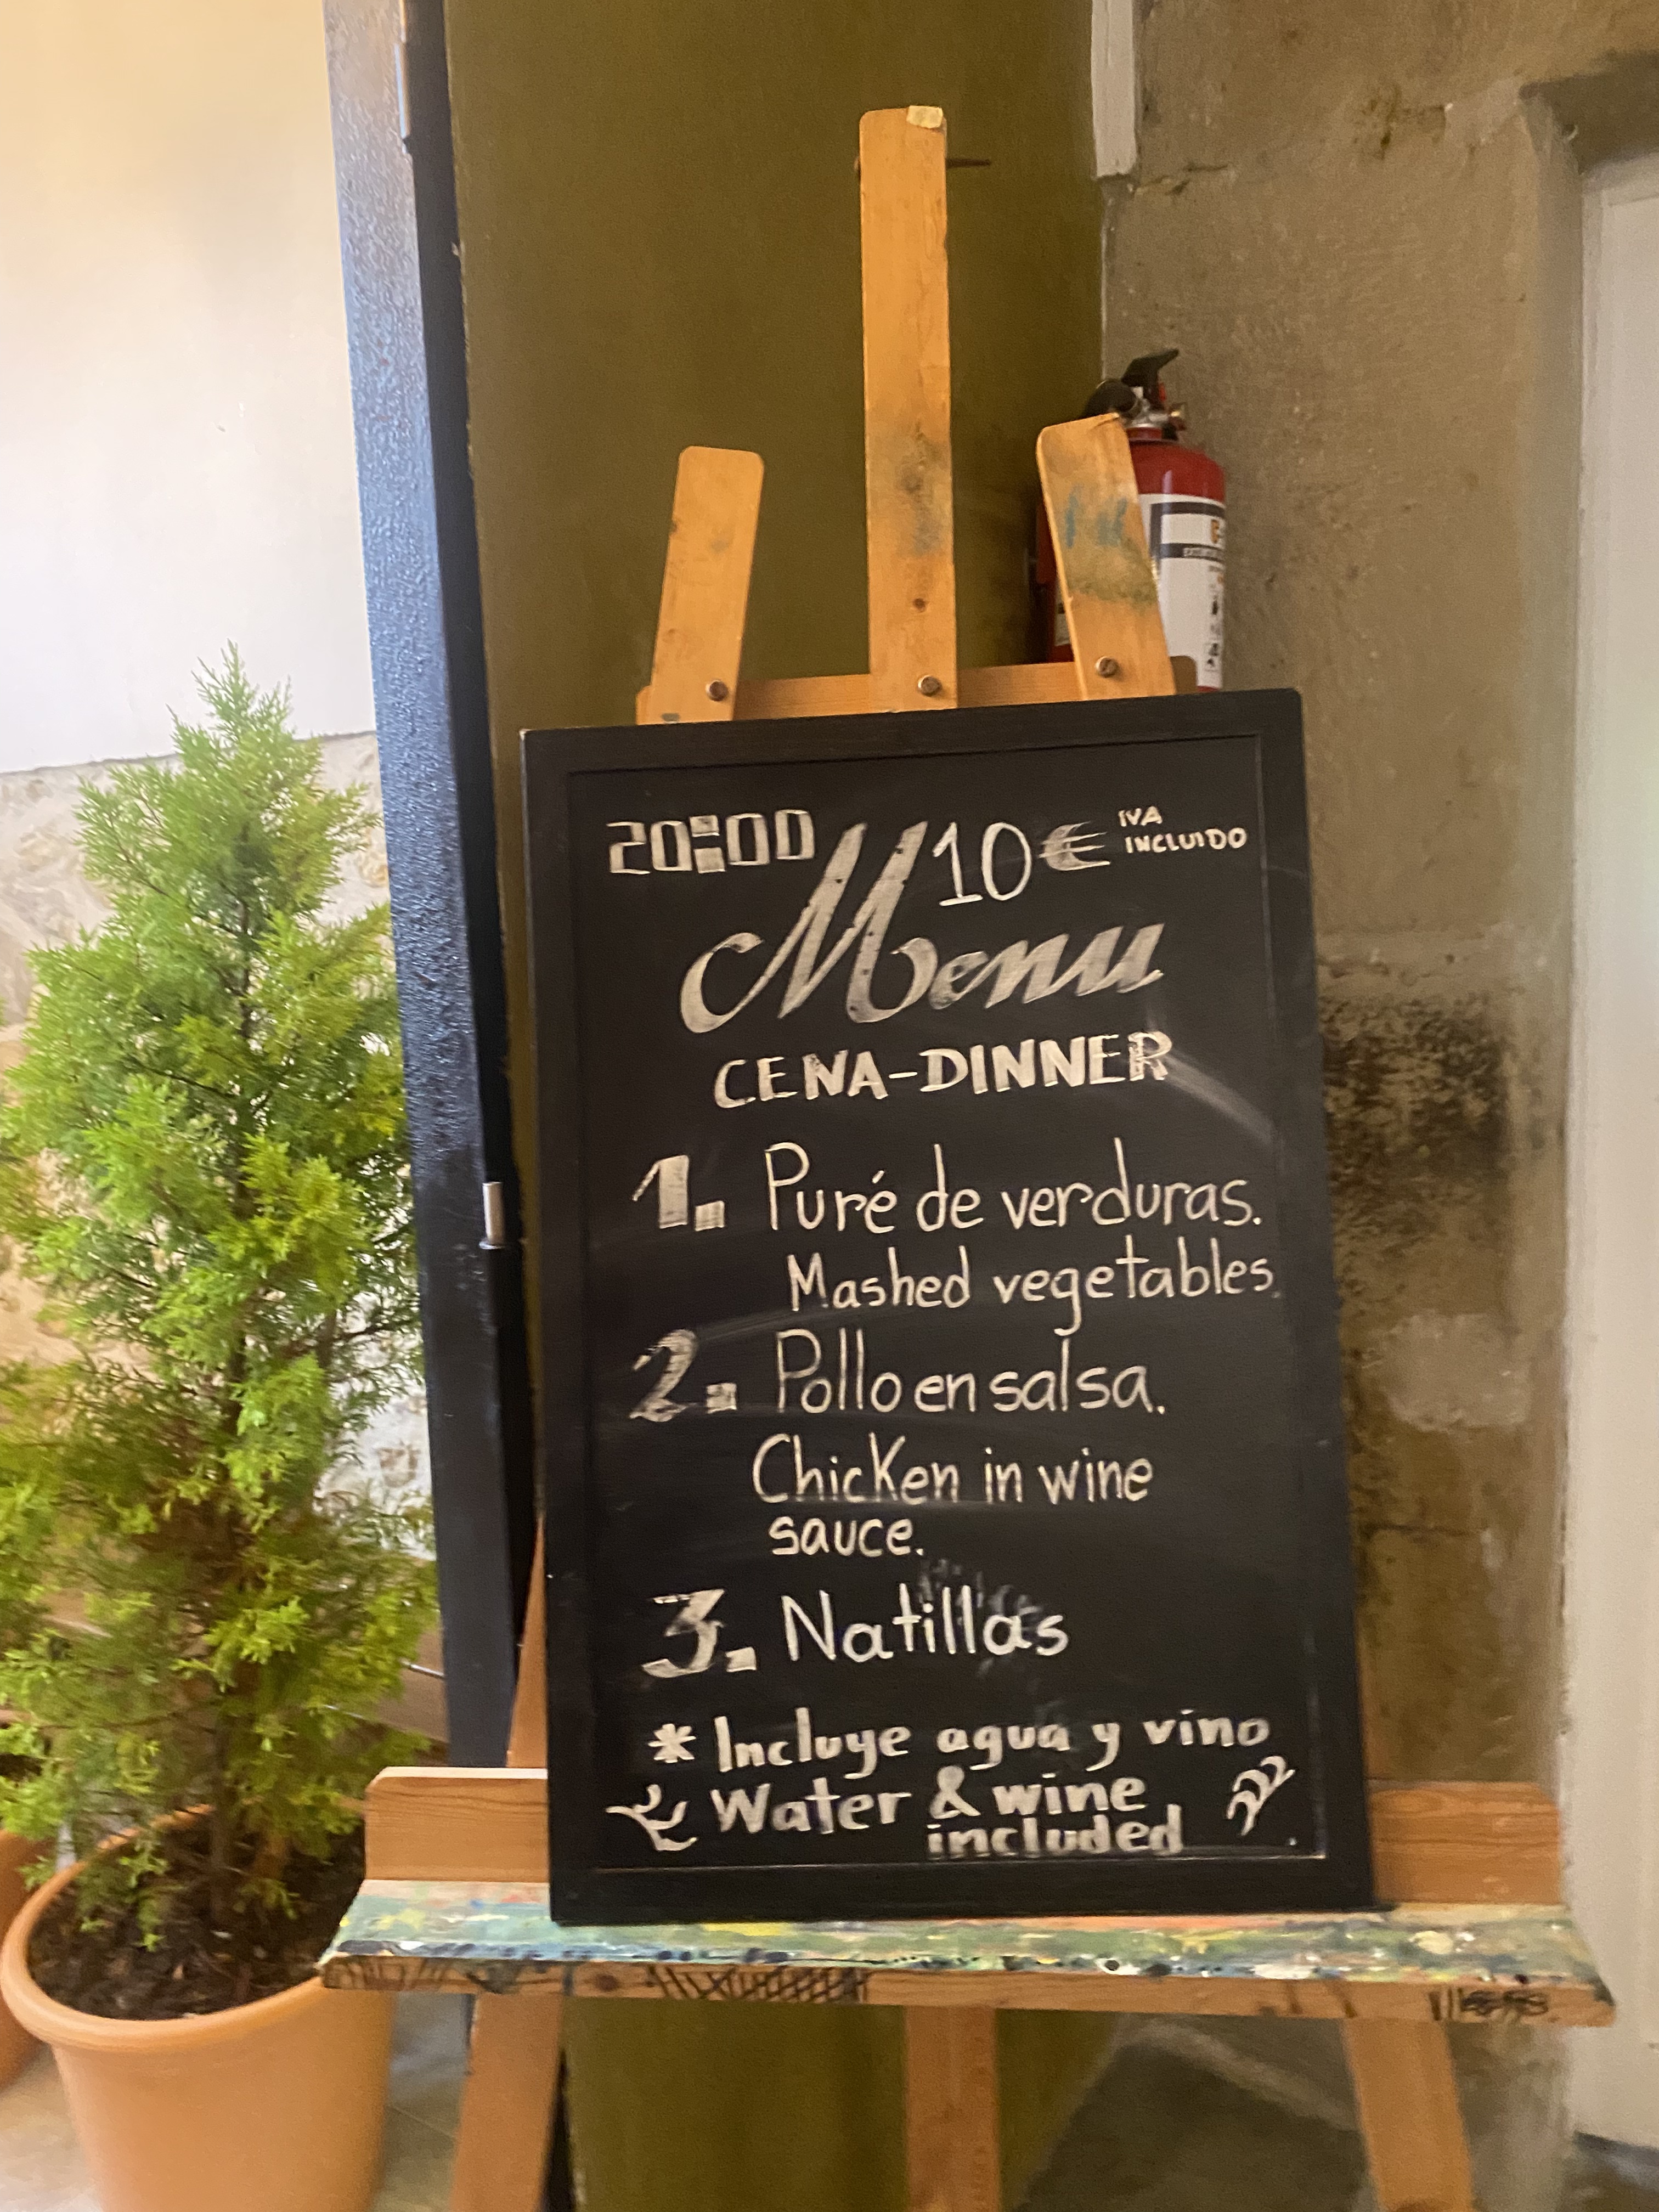 20:00
10€ IVA
INCLUIDO
Menu
CENA-DINNER
1. Puré de verduras.
Mashed vegetables.
2. Pollo en salsa.
Chicken in wine
sauce.
3. Natillas
* Incluye agua y vino
Water & wine
included